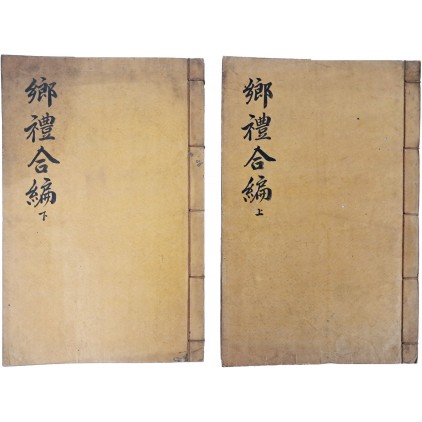 鄉禮合編 上
鄉禮合編 下